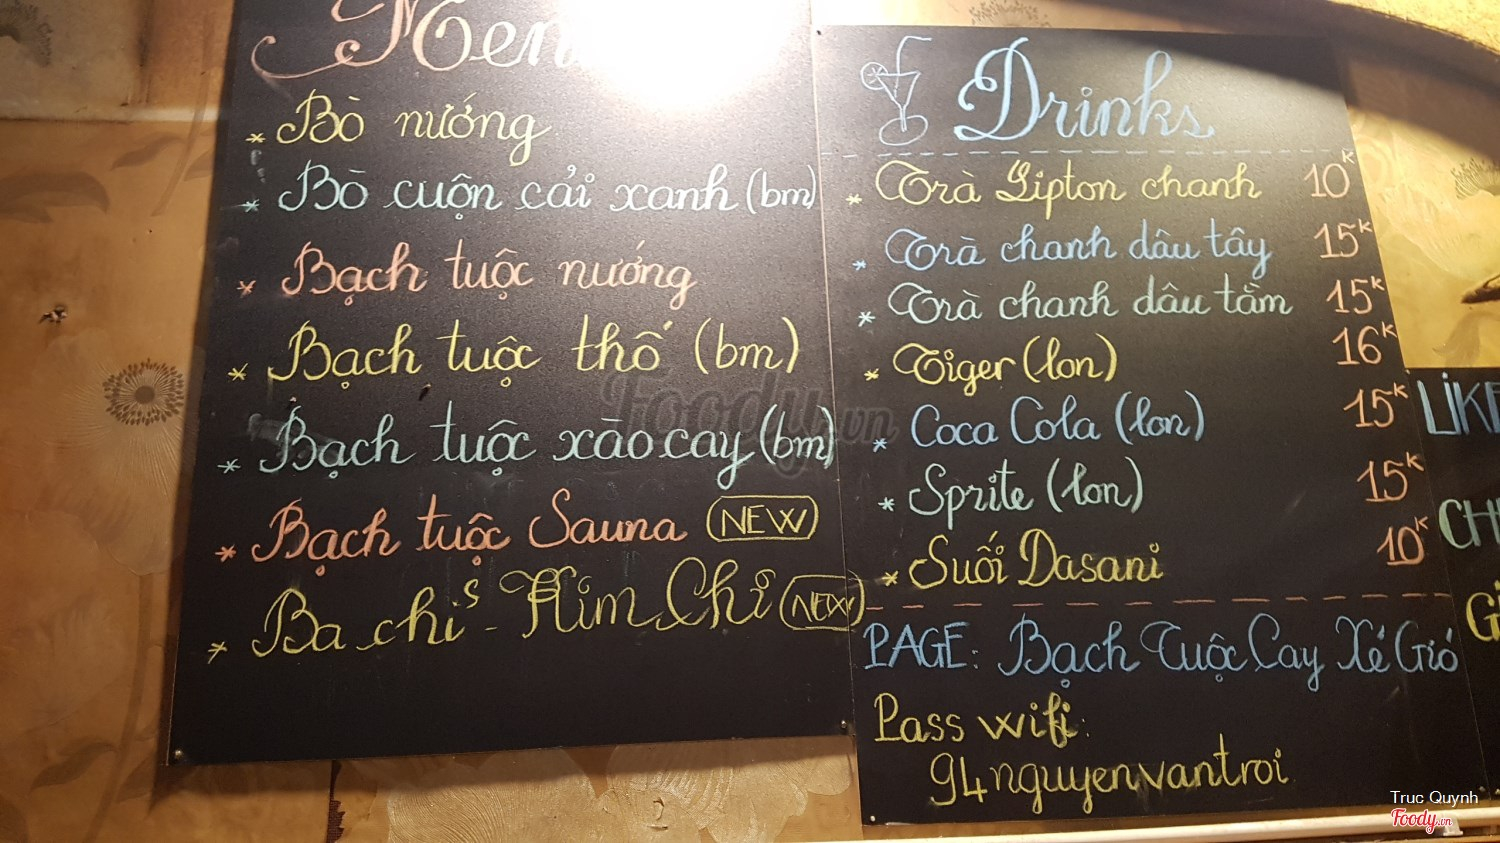 Menu
* Bò nướng
* Bò cuộn cải xanh (bm)
* Bạch tuộc nướng
* Bạch tuộc thố (bm)
* Bạch tuộc xào cay (bm)
* Bạch tuộc Sauna NEW
* Ba chỉ - Kim Chi NEW
Drinks
* Trà Lipton chanh 10K
* Trà chanh dâu tây 15K
* Trà chanh dâu tằm 15K
* Tiger (lon) 16K
* Coca Cola (lon) 15K
* Sprite (lon) 15K
* Suối Dasani 10K
PAGE: Bạch Tuộc Cay Xé Gió
Pass wifi:
94nguyenvantroi
LIKE
CH
Foody.vn
Truc Quynh
Foody.vn